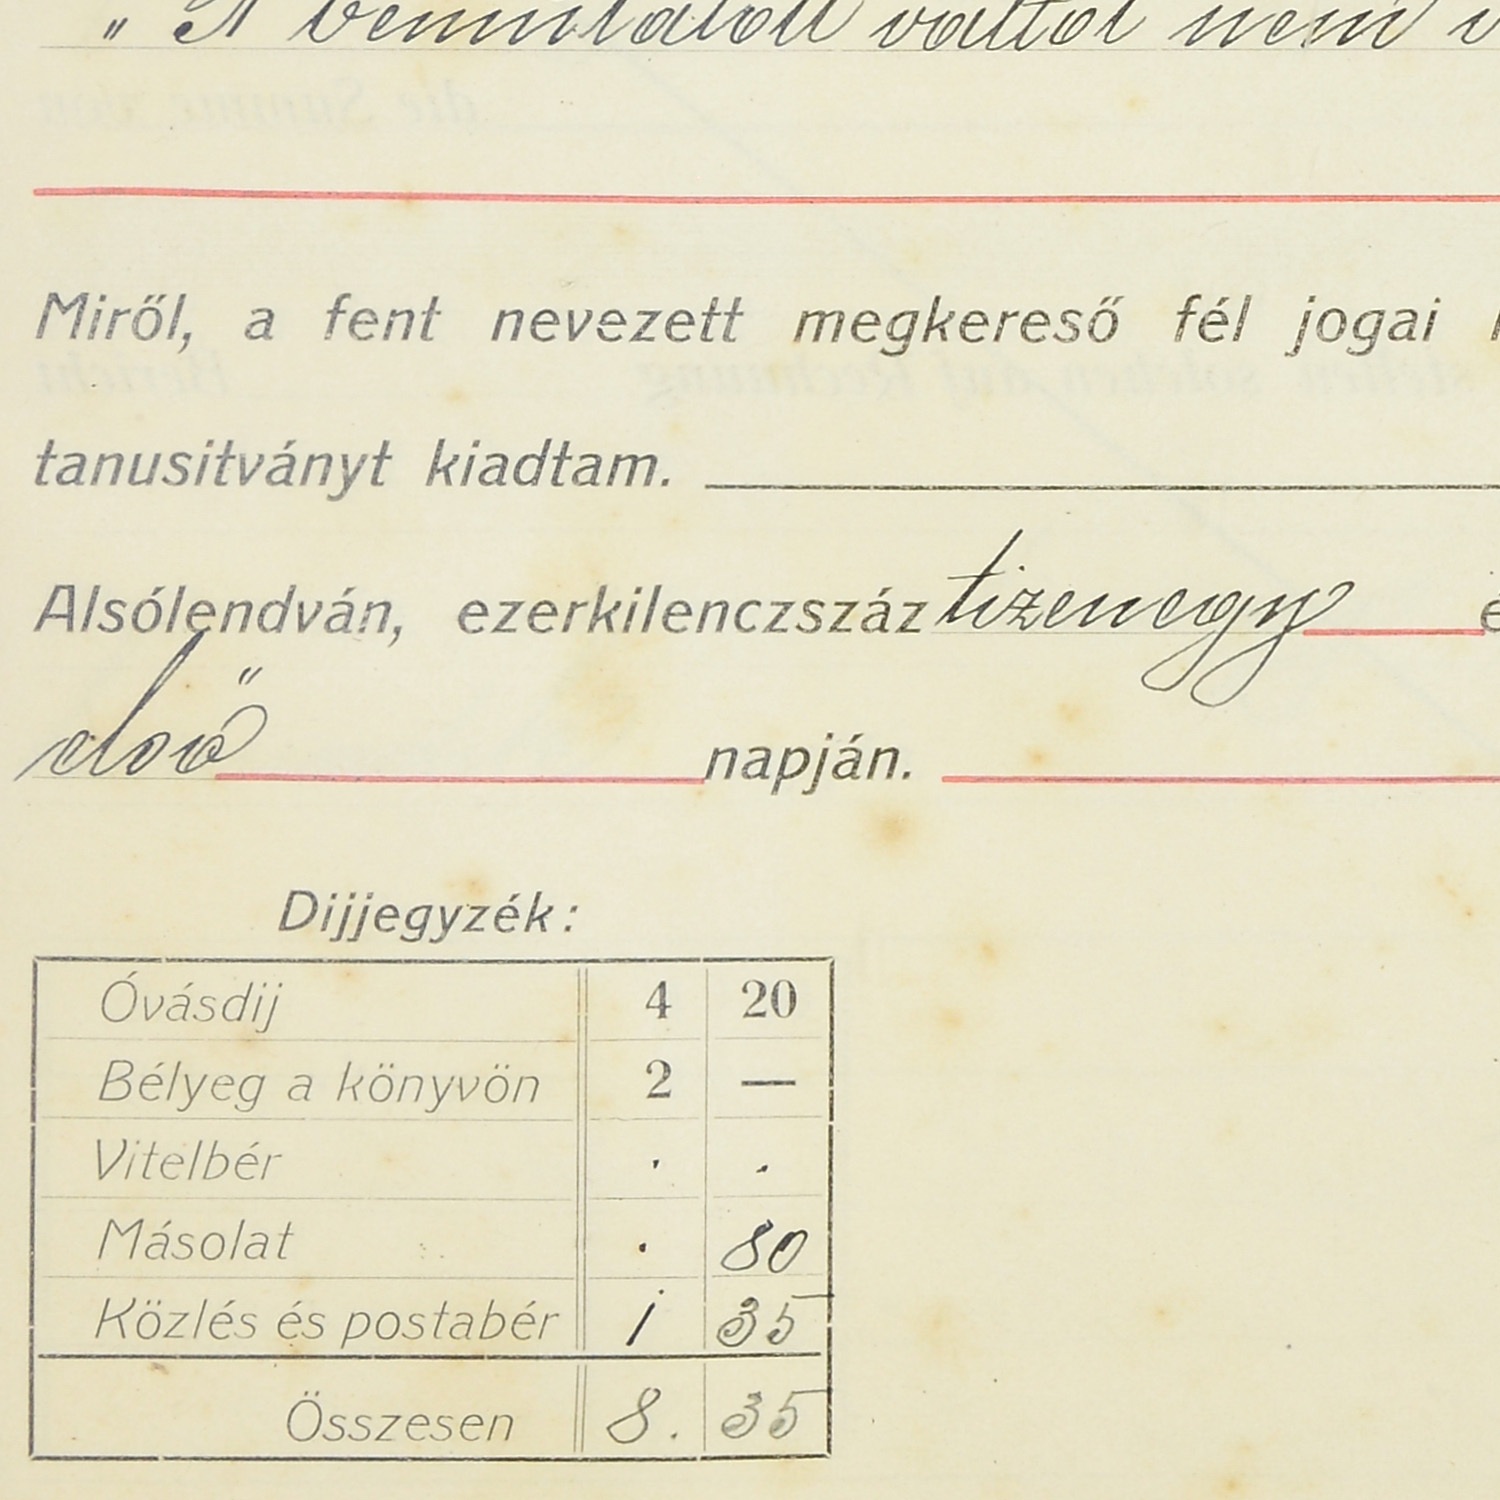 „A bemutatott váltót nem
Miről, a fent nevezett megkereső fél jogai
tanusitványt kiadtam.
Alsólendván, ezerkilenczszáz tizenegy
első napján.
Dijjegyzék:
Óvásdij 4 20
Bélyeg a könyvön 2 —
Vitelbér . .
Másolat . 80
Közlés és postabér 1 35
Összesen 8. 35